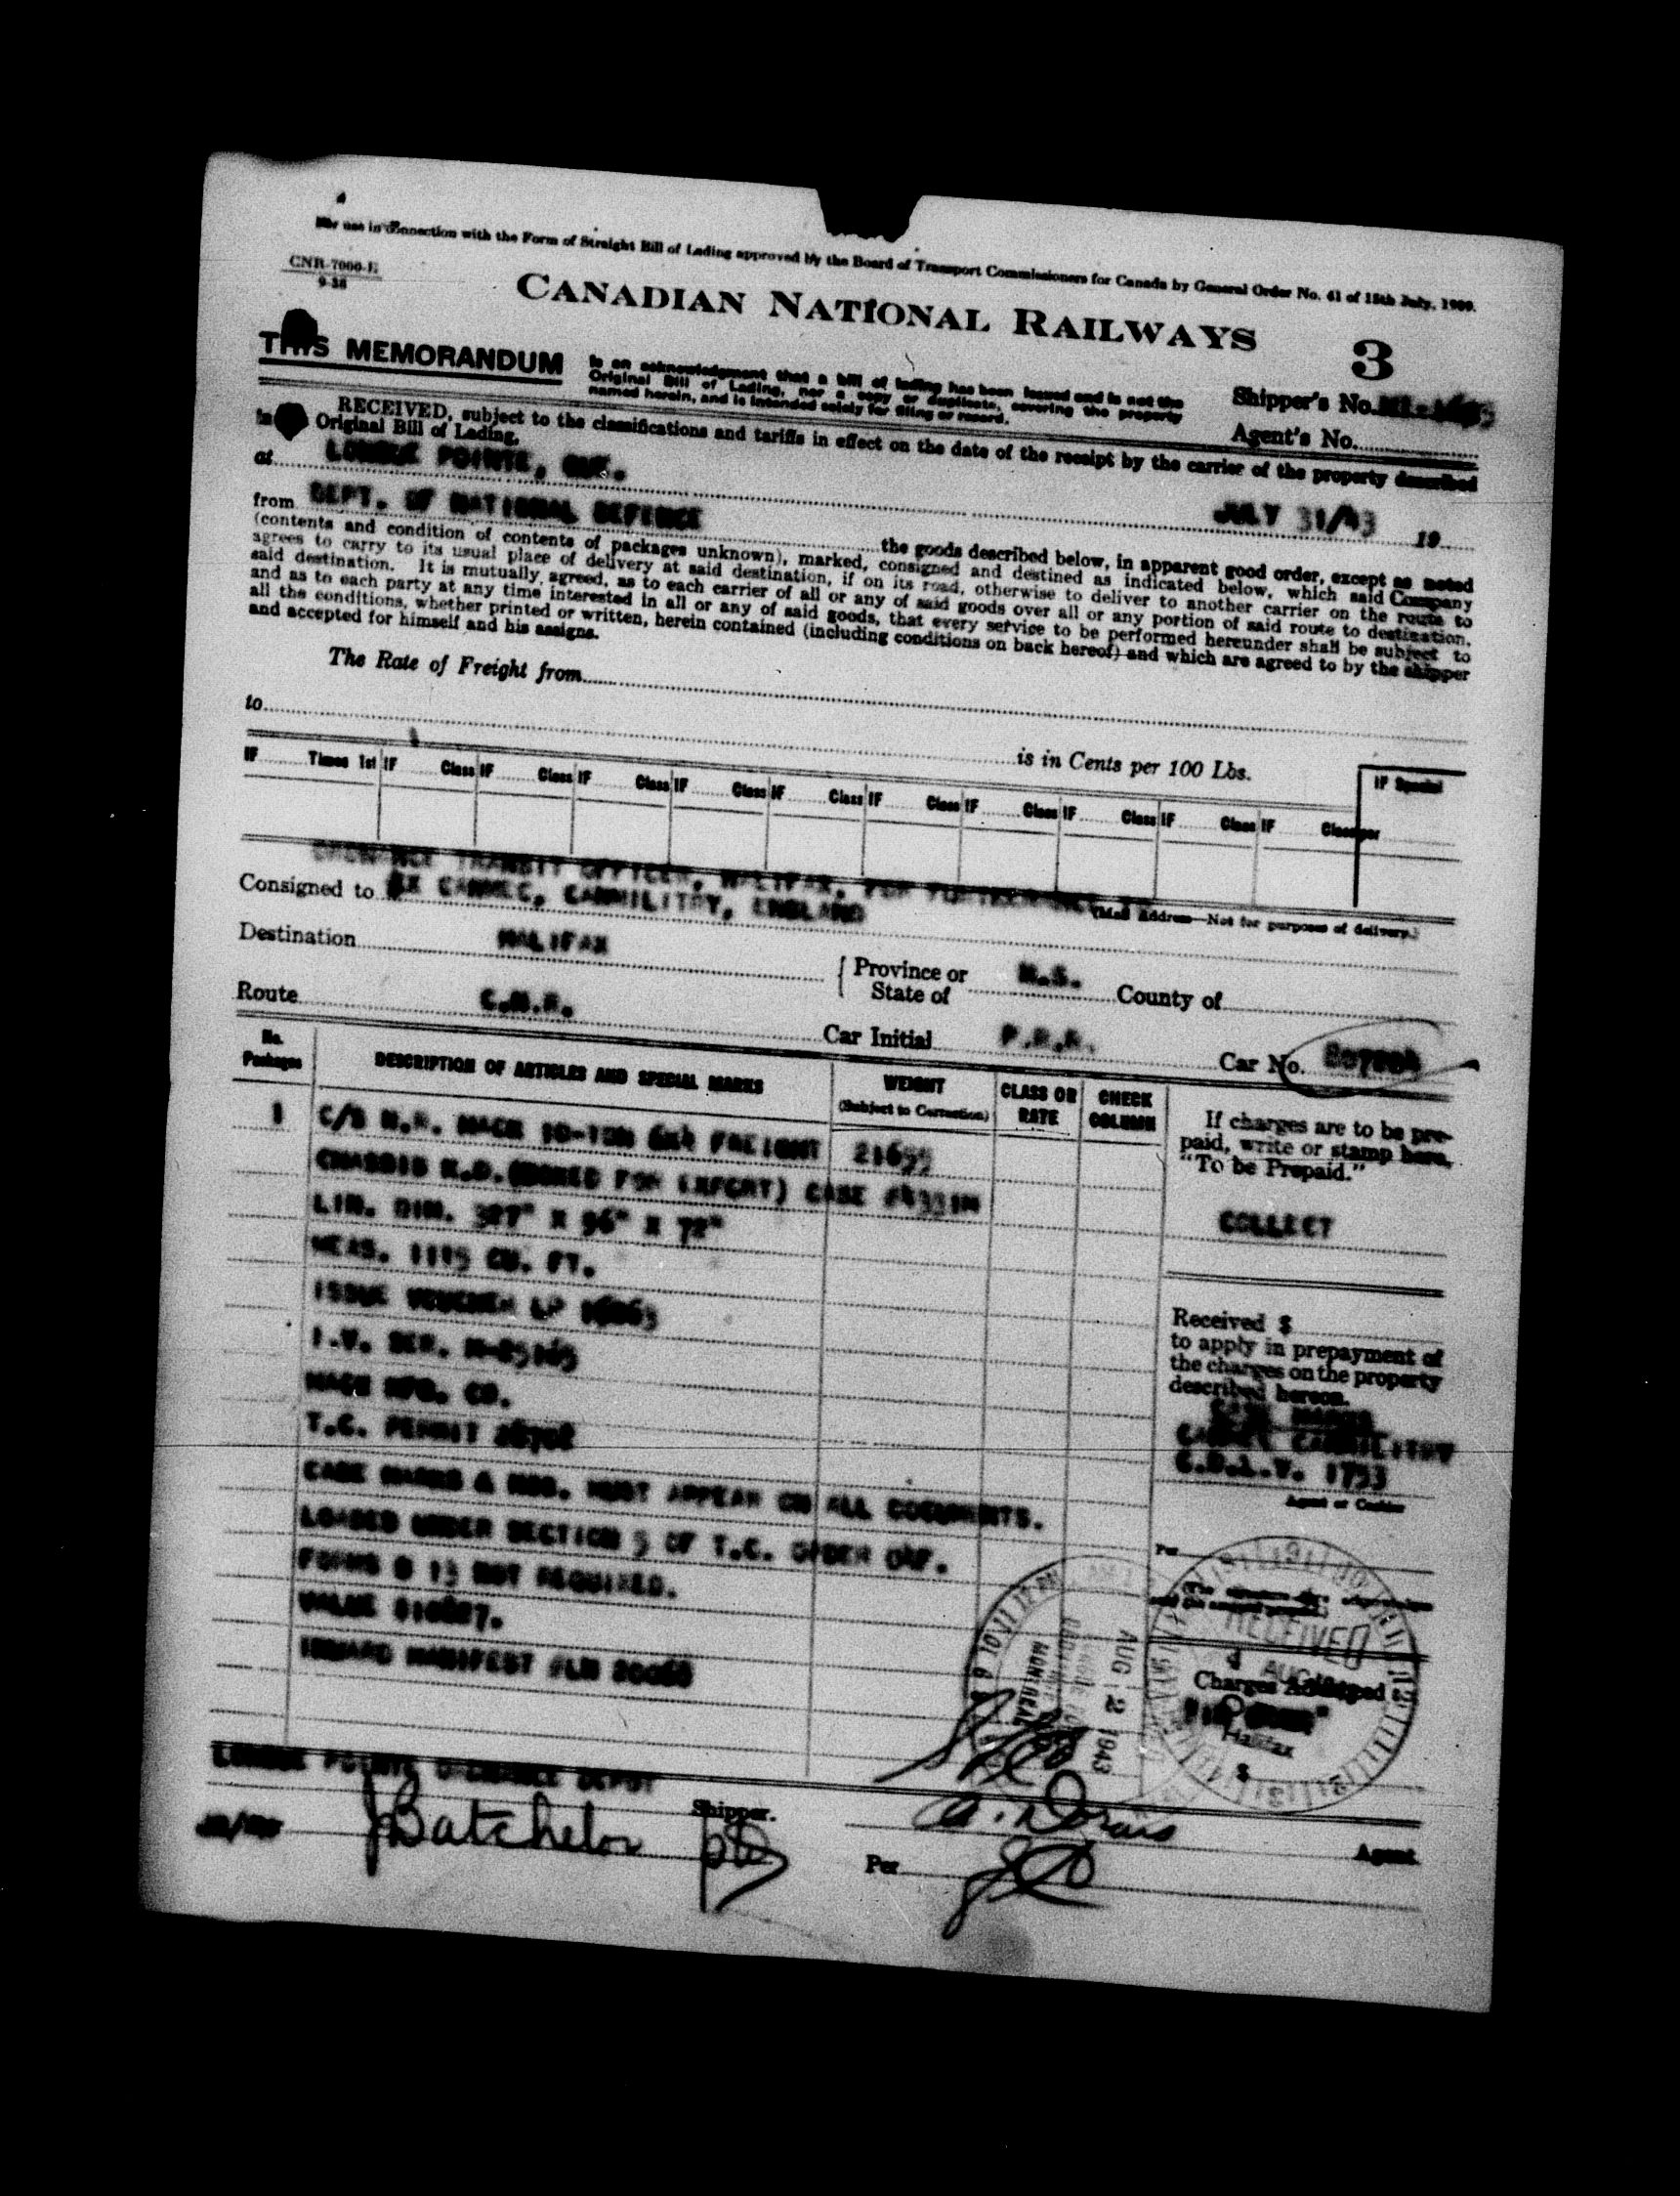 For use in connection with the Form of Straight Bill of Lading approved by the Board of Transport Commissioners for Canada by General Order No. 41 of 15th July, 1909.
CNR-7000-E
9-38
CANADIAN NATIONAL RAILWAYS
3
THIS MEMORANDUM
is an acknowledgment that a bill of lading has been issued and is not the
Original Bill of Lading, nor a copy or duplicate, covering the property
named herein, and is intended solely for filing or record.
Shipper's No.
Agent's No.
RECEIVED, subject to the classifications and tariffs in effect on the date of the receipt by the carrier of the property described
in Original Bill of Lading,
at LONGUE POINTE, QUE. JULY 31/43 19
from DEPT. OF NATIONAL DEFENCE the goods described below, in apparent good order, except as noted
(contents and condition of contents of packages unknown), marked, consigned and destined as indicated below, which said Company
agrees to carry to its usual place of delivery at said destination, if on its road, otherwise to deliver to another carrier on the route to
said destination. It is mutually agreed, as to each carrier of all or any of said goods over all or any portion of said route to destination,
and as to each party at any time interested in all or any of said goods, that every service to be performed hereunder shall be subject to
all the conditions, whether printed or written, herein contained (including conditions on back hereof) and which are agreed to by the shipper
and accepted for himself and his assigns.
The Rate of Freight from
to is in Cents per 100 Lbs.
IF Times 1st IF Class IF Class IF Class IF Class IF Class IF Class IF Class IF Class IF Class IF Class per
IF Special
ORDNANCE TRANSIT OFFICER, HALIFAX, FOR FURTHERANCE TO
(Mail Address—Not for purposes of delivery.)
Consigned to CANMILITRY, ENGLAND
Destination HALIFAX Province or State of N.S. County of
Route C.N.R. Car Initial P.R.R. Car No.
No. Packages
DESCRIPTION OF ARTICLES AND SPECIAL MARKS
WEIGHT
(Subject to Correction)
CLASS OR RATE
CHECK COLUMN
1 C/S N.R. MACK 10-TON 6X4 FREIGHT 21655
CHASSIS K.D. (BOXED FOR EXPORT) CASE
LIN. DIM. 327" X 96" X 72"
MEAS. 1115 CU. FT.
ISSUE VOUCHER LP
I.V. SER.
MACK MFG. CO.
T.C. PERMIT
CASE MARKS & NOS. MUST APPEAR ON ALL DOCUMENTS.
LOADED UNDER SECTION 5 OF T.C. ORDER
FORMS B 13 NOT REQUIRED.
VALUE
INWARD MANIFEST
If charges are to be pre-
paid, write or stamp here,
"To be Prepaid."
COLLECT
Received $
to apply in prepayment of
the charges on the property
described hereon.
CASE MARKS
CANMILITRY
C.D.L.V. 1753
Agent or Cashier
Per
Charges Advanced
$
RECEIVED
AUG
Halifax
AUG 2 1943
MONTREAL
LONGUE POINTE ORDNANCE DEPOT
Shipper.
J Batchelor
A. Dorais
Agent
Per